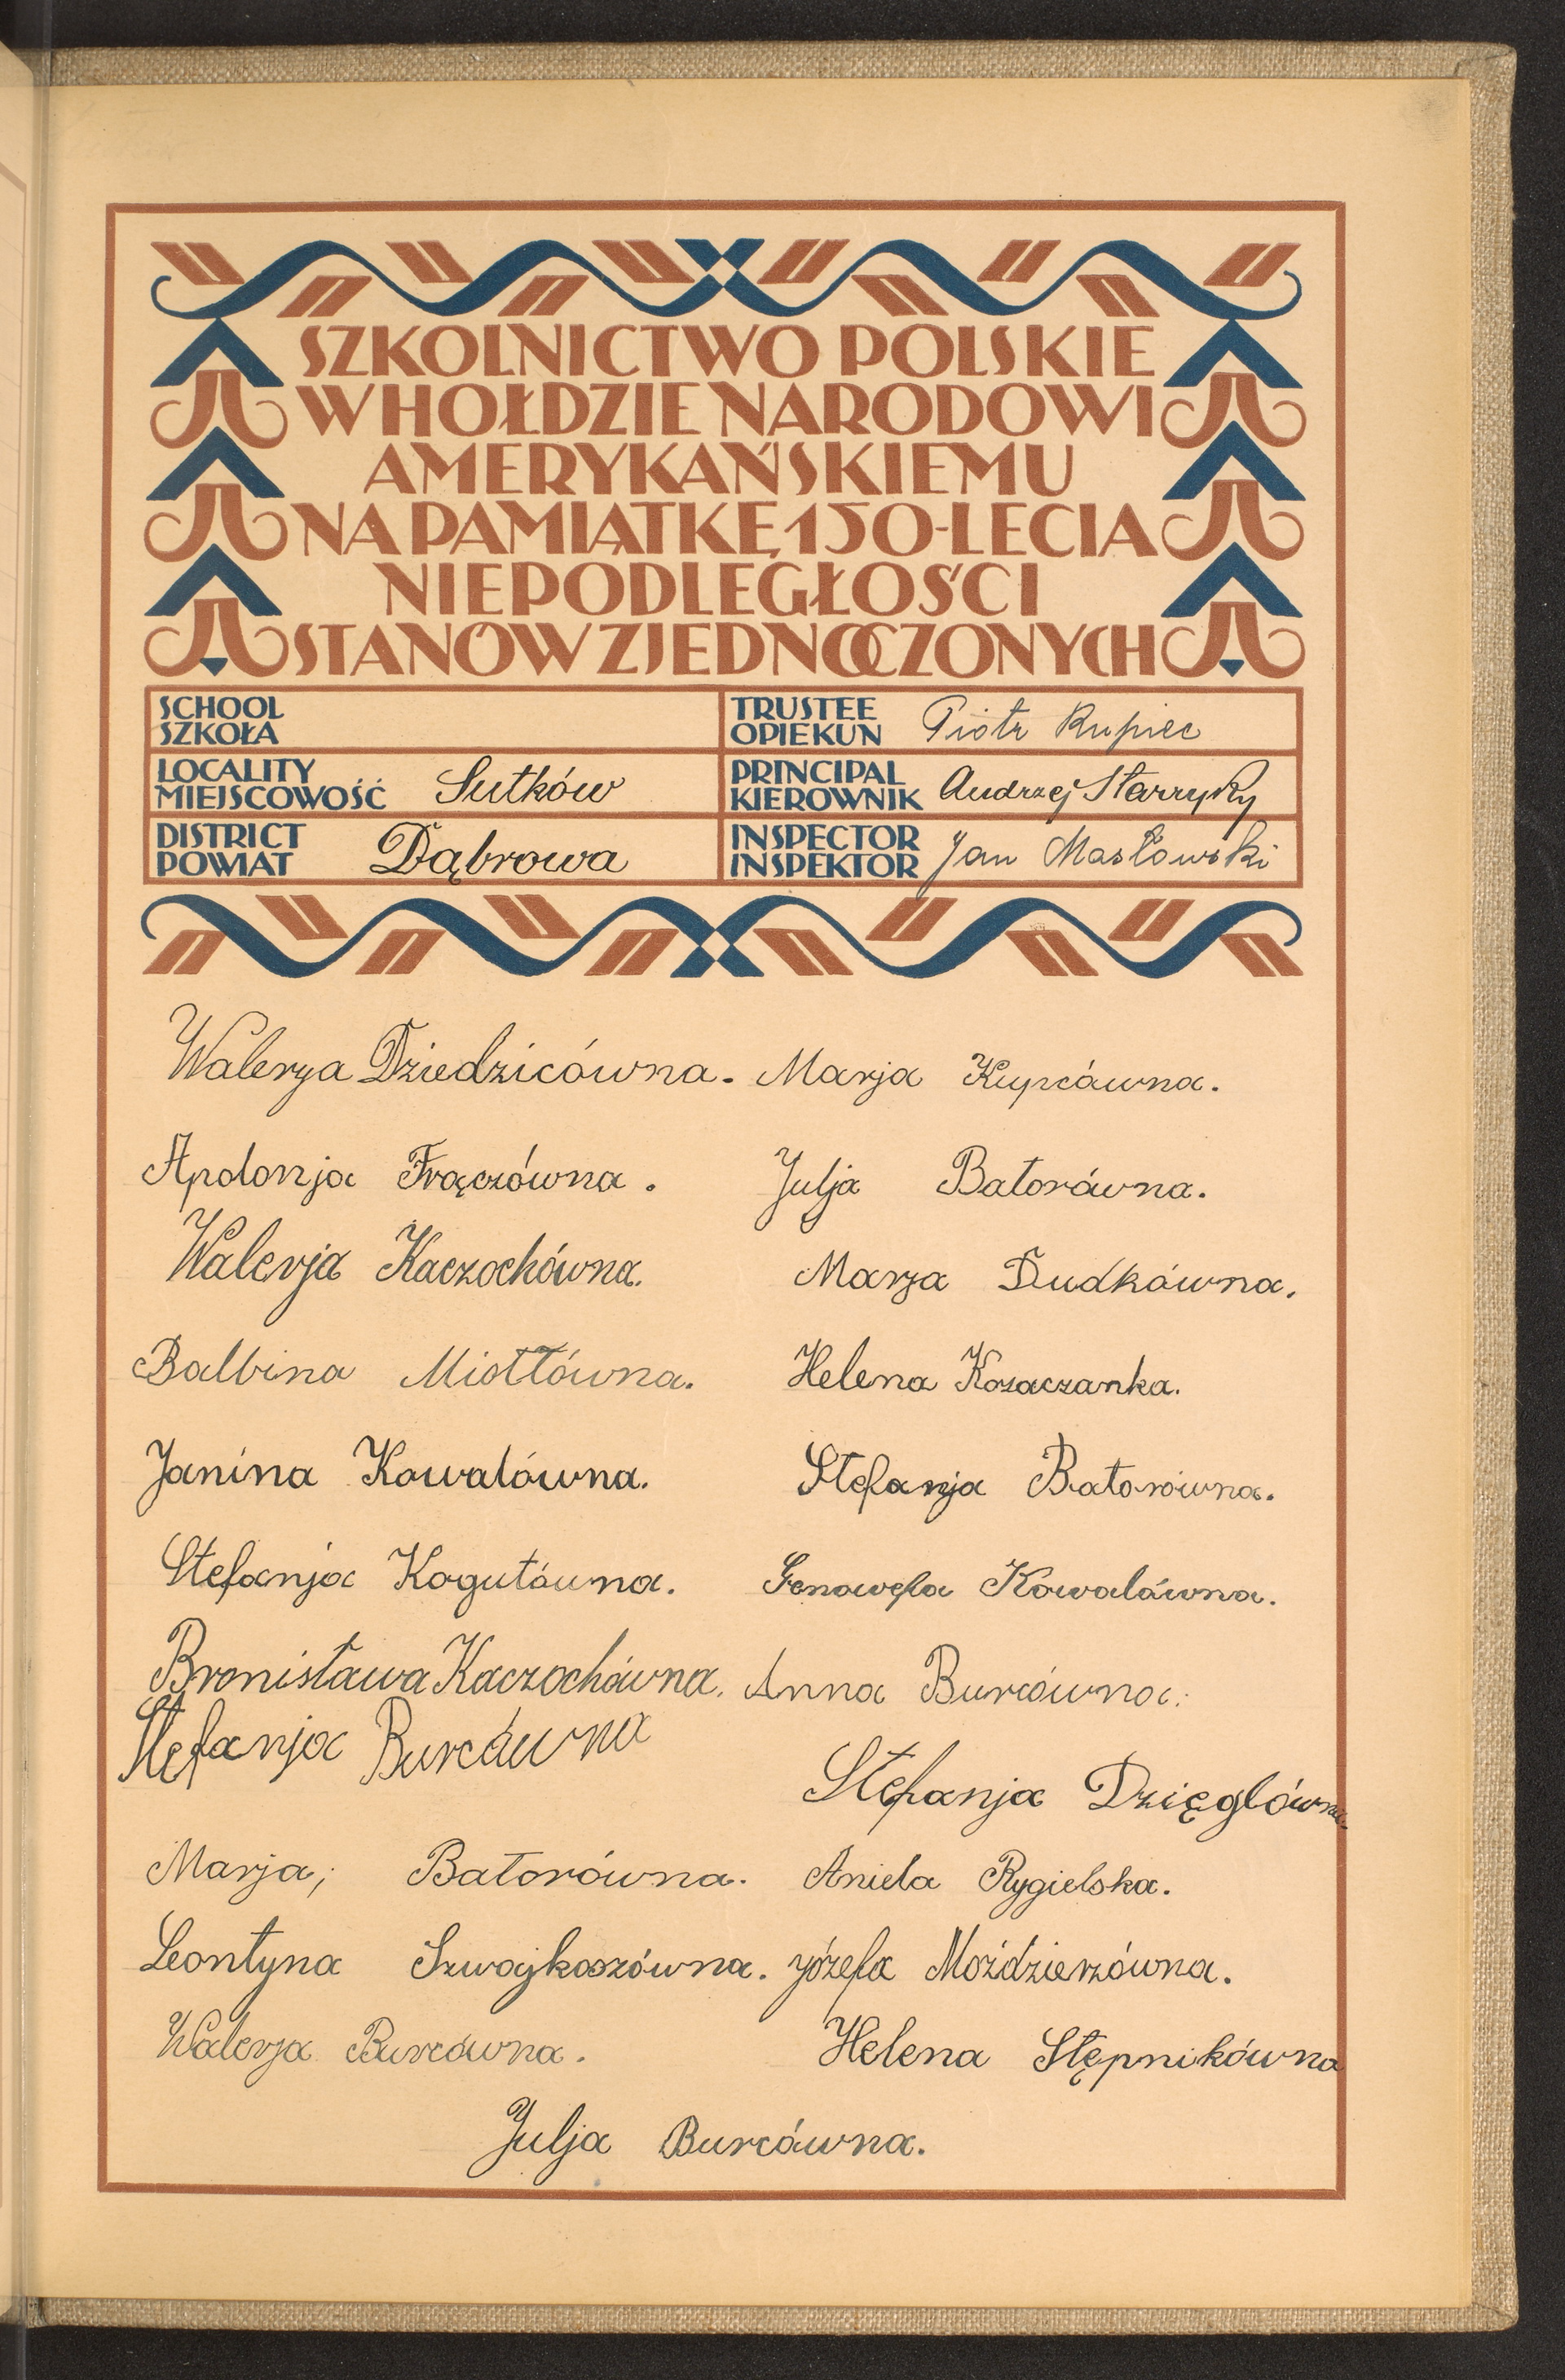 SZKOLNICTWO POLSKIE
W HOŁDZIE NARODOWI
AMERYKAŃSKIEMU
NA PAMIĄTKĘ 150-LECIA
NIEPODLEGŁOŚCI
STANÓW ZJEDNOCZONYCH
SCHOOL
SZKOŁA
TRUSTEE
OPIEKUN Piotr Kupiec
LOCALITY
MIEJSCOWOŚĆ Sutków
PRINCIPAL
KIEROWNIK Andrzej
DISTRICT
POWIAT Dąbrowa
INSPECTOR
INSPEKTOR Jan Masłowski
Walerja Dziedzicówna. Marja Kupcówna.
Apolonja Frączówna. Julja Batorówna.
Walerja Kaczochówna. Marja Dudkówna.
Balbina Miotłówna. Helena Kozaczanka.
Janina Kowalówna. Stefanja Batorówna.
Stefanja Kogutówna. Genowefa Kowalówna.
Bronisława Kaczochówna. Anna Burcówna.
Stefanja Burcówna
Stefanja Dzięglówna.
Marja; Batorówna. Aniela Rygielska.
Leontyna Szwajkoszówna. Józefa Moździerzówna.
Walerja Burcówna. Helena Stępnikówna
Julja Burcówna.